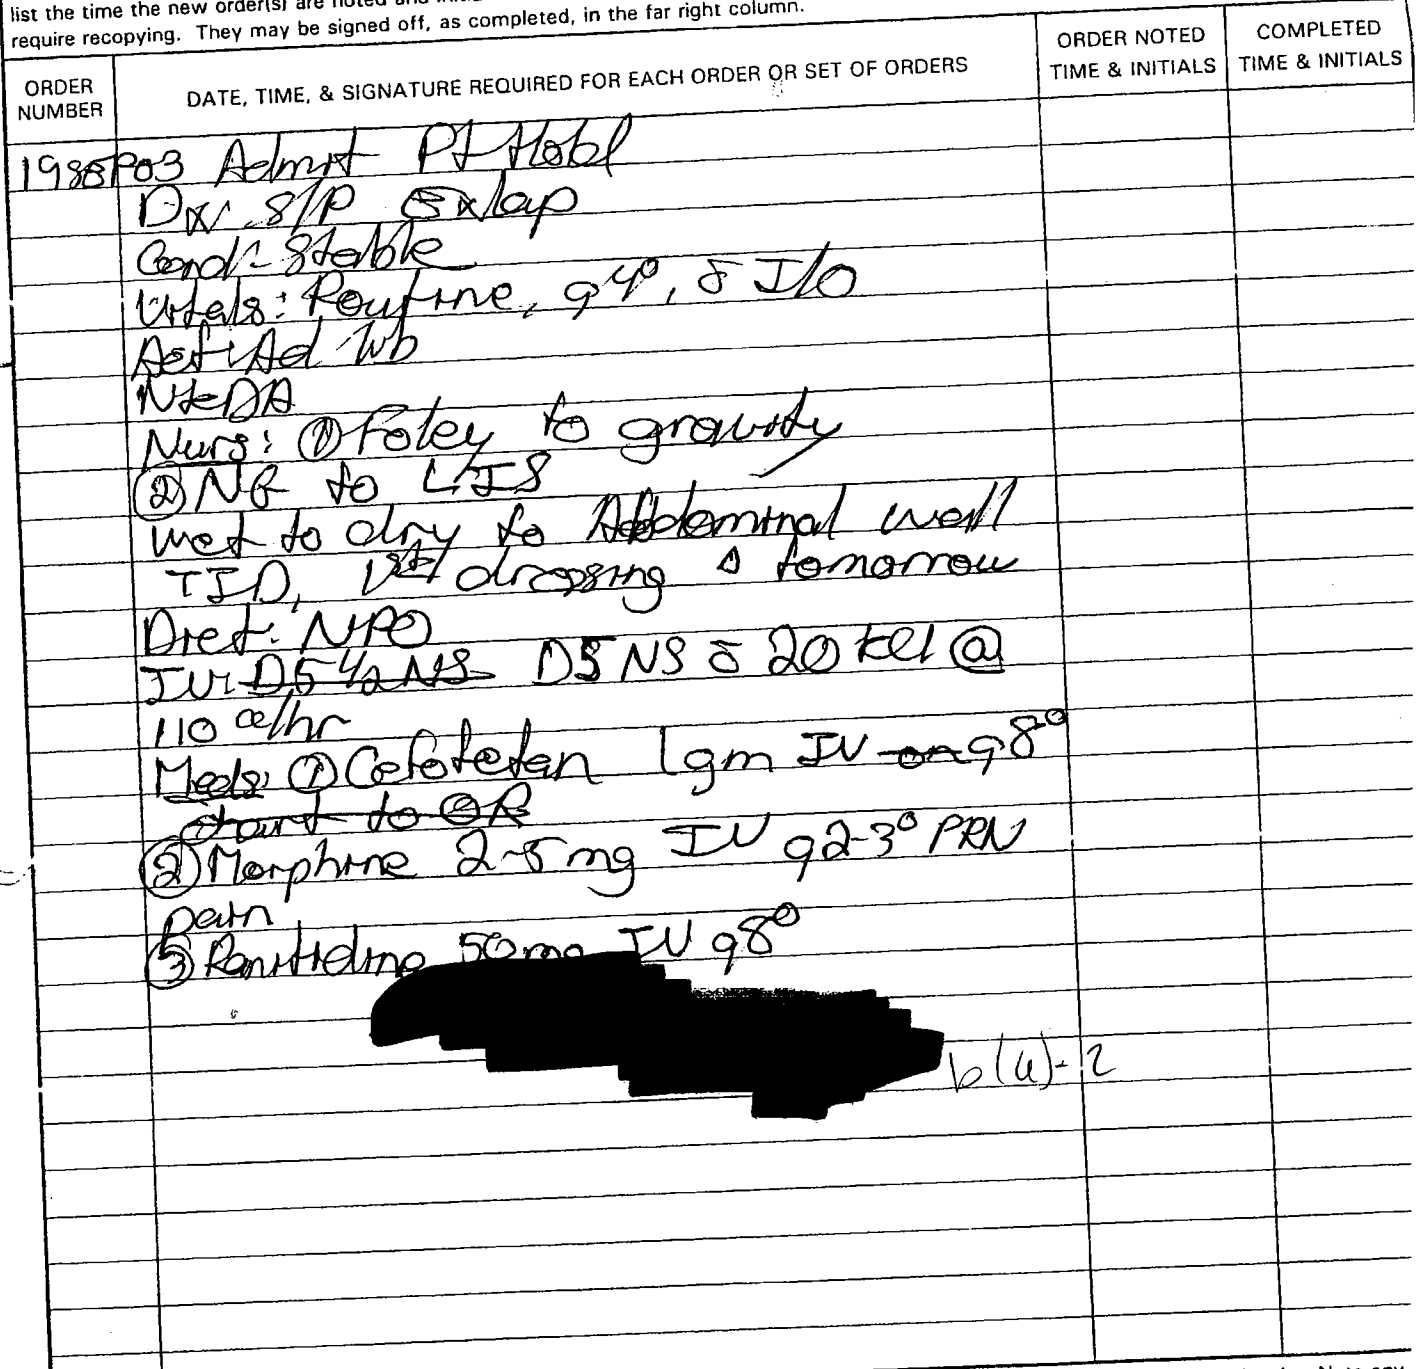 list the time the new order(s) are noted and
require recopying. They may be signed off, as completed, in the far right column.
ORDER NUMBER
DATE, TIME, & SIGNATURE REQUIRED FOR EACH ORDER OR SET OF ORDERS
ORDER NOTED TIME & INITIALS
COMPLETED TIME & INITIALS
Admit
Dx: S/P Exlap
Cond: Stable
Vitals: Routine, q4°, c̄ I/O
Act: Ad lib
NKDA
Nurs: ① Foley to gravity
② NG to LIS
wet to dry to Abdominal wall
TID, 1st dressing Δ tomorrow
Diet: NPO
IV: D5 ½ NS D5 NS c̄ 20 kcl @
110 cc/hr
Meds: ① Cefotetan 1gm IV on q8°
to OR
② Morphine 2-5mg IV q2-3° PRN
pain
③ Ranitidine 50mg IV q8°